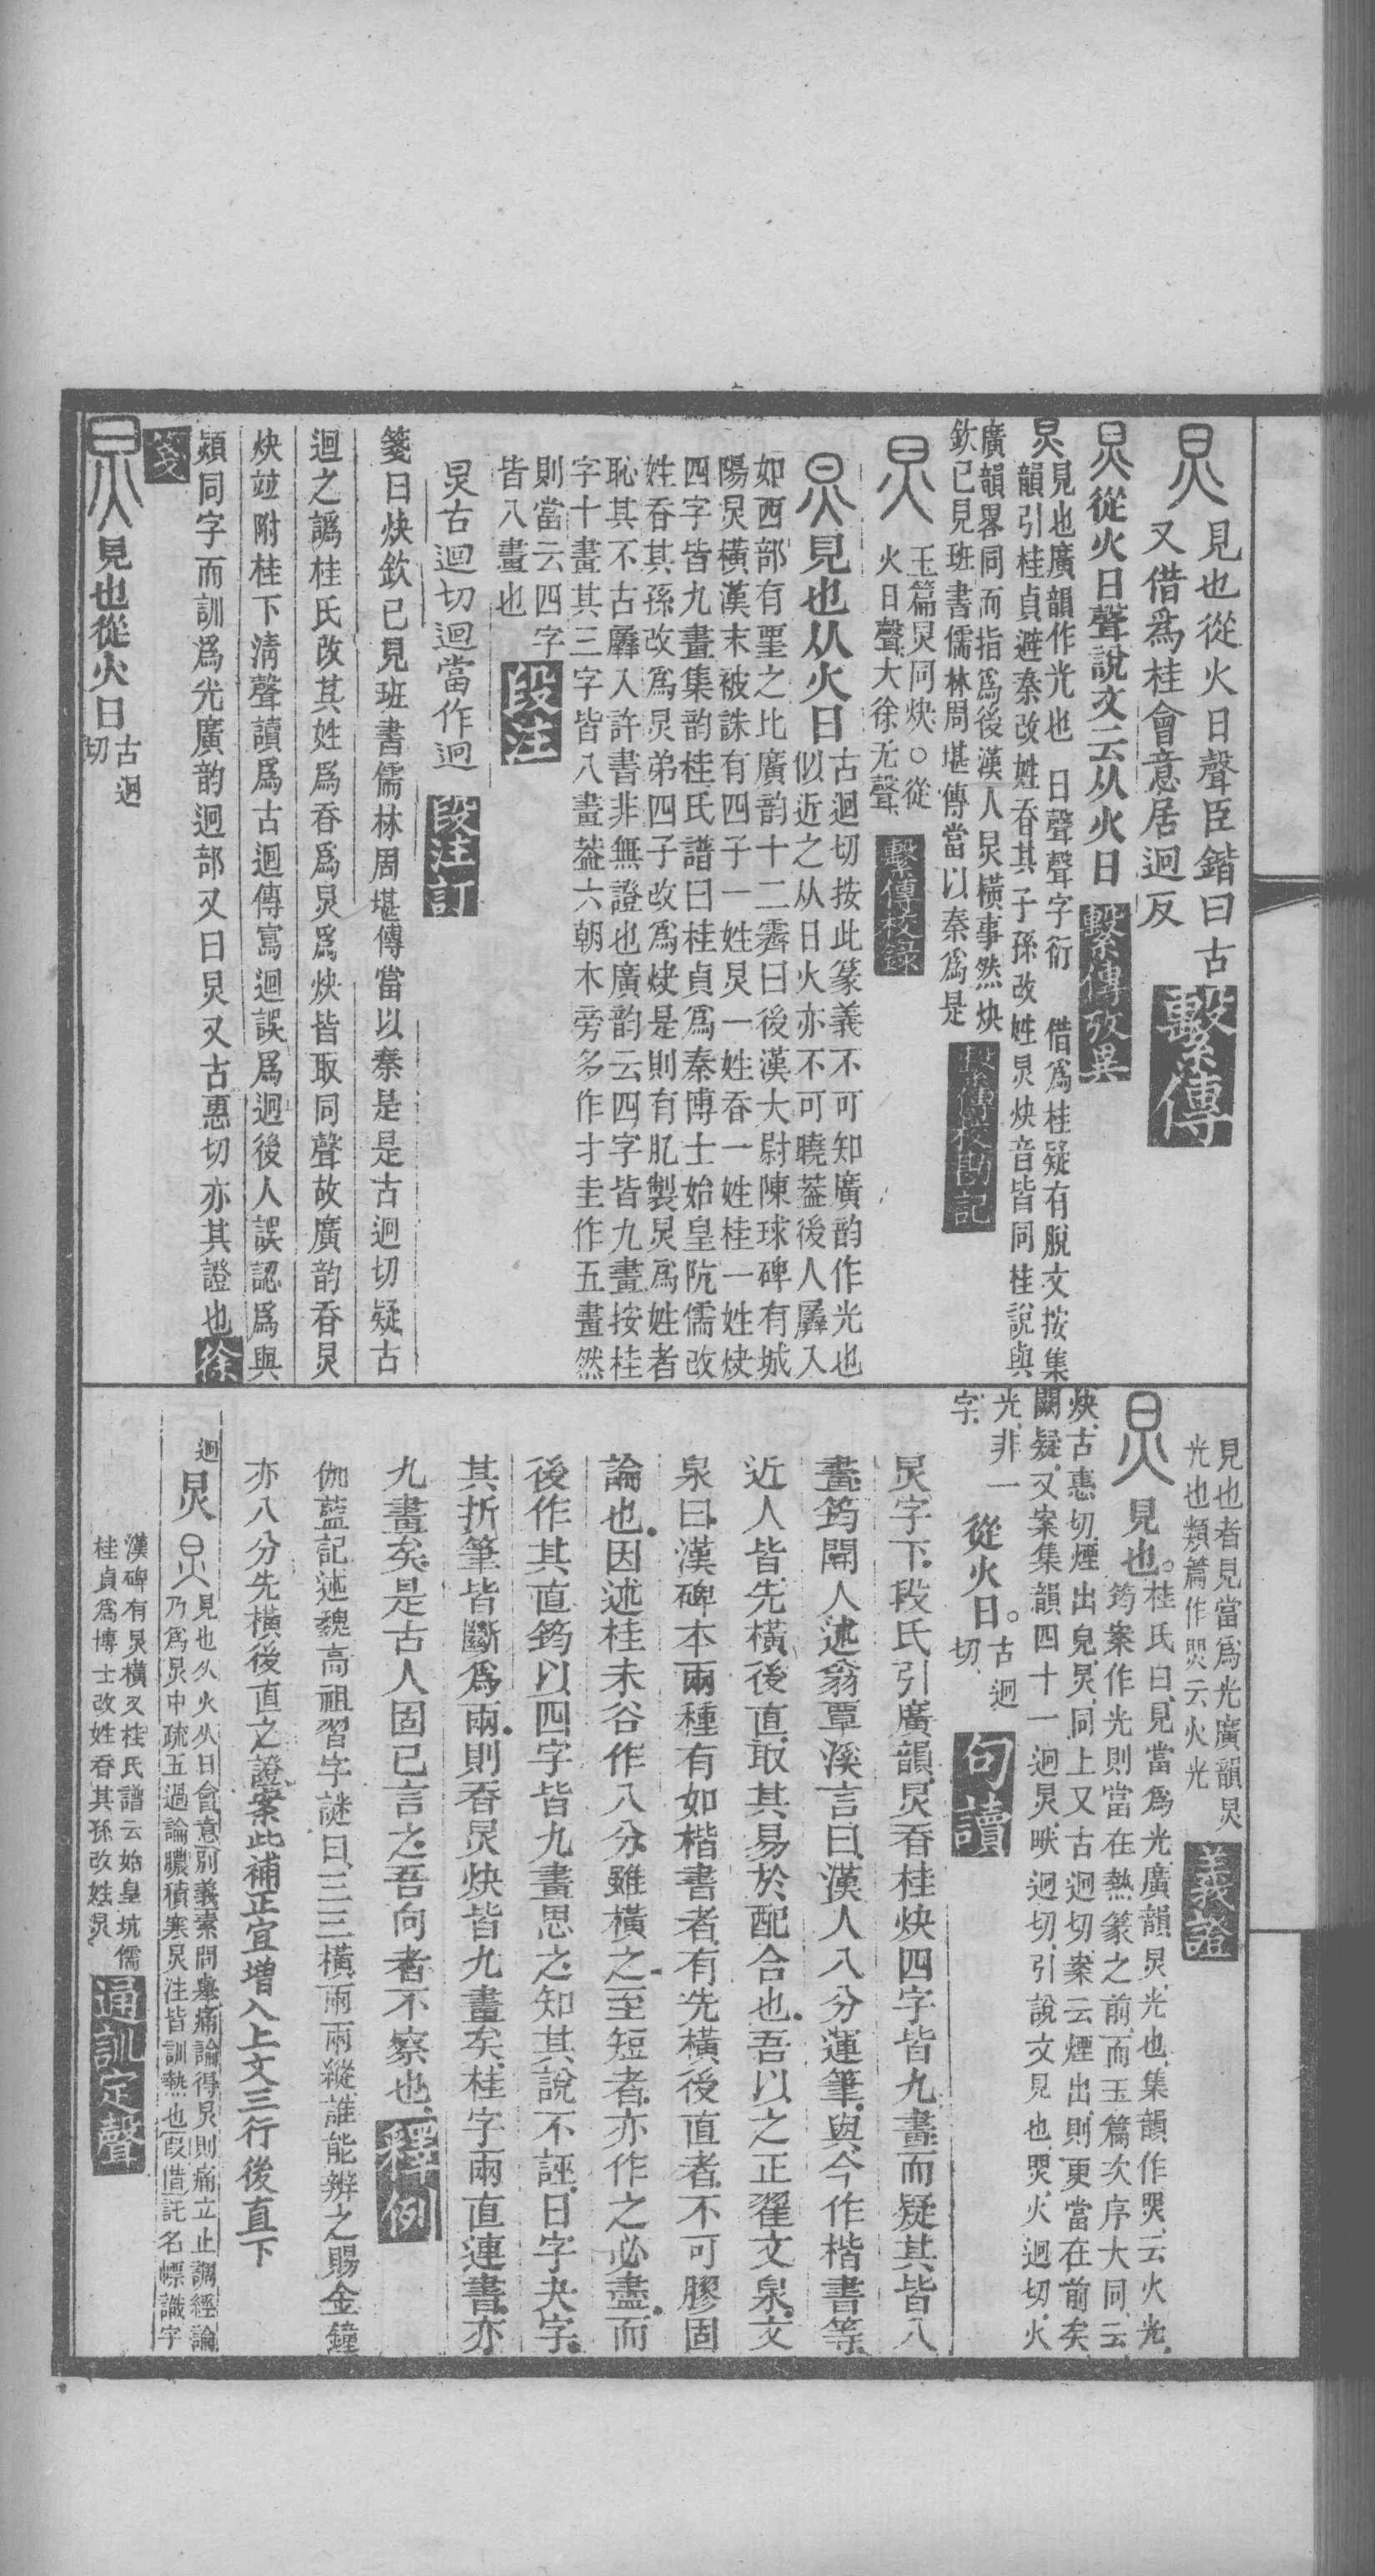 見也從火日聲臣鍇曰古
又借爲桂會意居迥反
繫傳
炅從火日聲說文云从火日
繫傳攷異
炅見也廣韻作光也 日聲聲字衍 借爲桂疑有脫文按集
韻引桂貞避秦改姓吞其子孫改姓炅炔音皆同桂說與
廣韻畧同而指爲後漢人炅橫事然炔
欽已見班書儒林周堪傳當以秦爲是
繫傳校勘記
玉篇炅同炔○從
火日聲大徐无聲
繫傳校錄
見也从火日
古迥切按此篆義不可知廣韵作光也
似近之从日火亦不可曉葢後人羼入
如西部有垔之比廣韵十二霽曰後漢大尉陳球碑有城
陽炅橫漢末被誅有四子一姓炅一姓吞一姓桂一姓炔
四字皆九畫集韵桂氏譜曰桂貞爲秦博士始皇阬儒改
姓吞其孫改爲炅弟四子改爲炔是則有肊製炅爲姓者
恥其不古羼入許書非無證也廣韵云四字皆九畫按桂
字十畫其三字皆八畫葢六朝木旁多作才圭作五畫然
則當云四字
皆八畫也
段注
炅古迴切迴當作迥
段注訂
箋曰炔欽已見班書儒林周堪傳當以秦是是古迥切疑古
迴之譌桂氏改其姓爲吞爲炅爲炔皆取同聲故廣韵吞炅
炔竝附桂下清聲讀爲古迴傳寫迴誤爲迥後人誤認爲與
熲同字而訓爲光廣韵迥部又曰炅又古惠切亦其證也
徐箋
見也從火日
古迥
切
見也者見當爲光廣韻炅
光也類篇作炅云火光
義證
見也。桂氏曰見當爲光廣韻炅光也集韻作炅云火光
筠案作光則當在熱篆之前而玉篇次序大同云
炔古惠切煙出皃炅同上又古迥切案云煙出則更當在前矣
闕疑又案集韻四十一迥炅昳迥切引說文見也炅火迥切火
光非一
字
從火日。
古迥
切
句讀
炅字下段氏引廣韻炅吞桂炔四字皆九畫而疑其皆八
畫筠聞人述翁覃溪言曰漢人八分運筆與今作楷書等
近人皆先橫後直取其易於配合也吾以之正翟文泉文
泉曰漢碑本兩種有如楷書者有先橫後直者不可膠固
論也因述桂未谷作八分雖橫之至短者亦作之必盡而
後作其直筠以四字皆九畫思之知其說不誣日字夬字
其折筆皆斷爲兩則吞炅炔皆九畫矣桂字兩直連書亦
九畫矣是古人固已言之吾向者不察也
釋例
伽藍記述魏高祖習字謎曰三三橫兩兩縱誰能辨之賜金鐘
亦八分先橫後直之證案此補正宜增入上文三行後直下
迥 炅 見也从火从日會意別義素問舉痛論得炅則痛立止調經論
乃爲炅中疏五過論膿積寒炅注皆訓熱也叚借託名幖識字
漢碑有炅橫又桂氏譜云始皇坑儒
桂貞爲博士改姓吞其孫改姓炅
通訓定聲